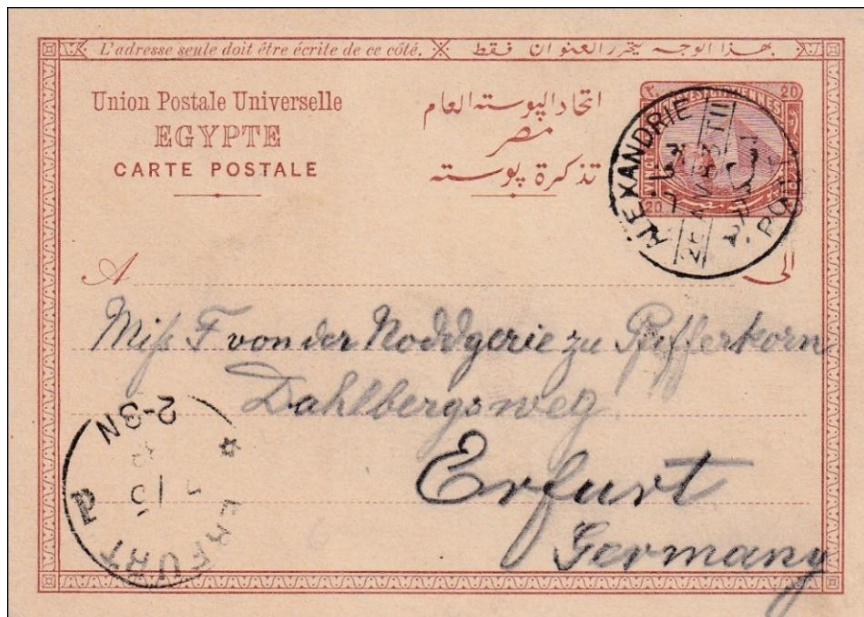 L'adresse seule doit être écrite de ce côté. بهذا الوجه يحرر العنوان فقط
Union Postale Universelle
EGYPTE
CARTE POSTALE
اتحاد البوسته العام
مصر
تذكرة بوسته
20
20
ALEXANDRIE
A
الى
Miss F von der
zu Pfefferkorn
Dahlbergsweg
Erfurt
Germany
ERFURT
2-3N